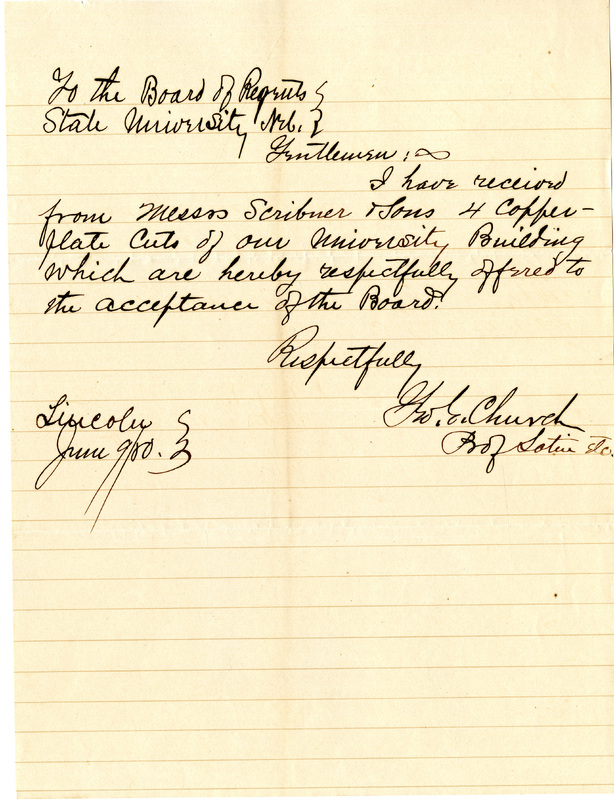 To the Board of Regents
State University Neb.
Gentlemen:
I have received
from Messrs Scribner & Sons 4 Copper-
plate Cuts of our University Building
which are hereby respectfully offered to
the acceptance of the Board.
Respectfully
Geo. E. Church
Prof Latin etc.
Lincoln
June 9/80.